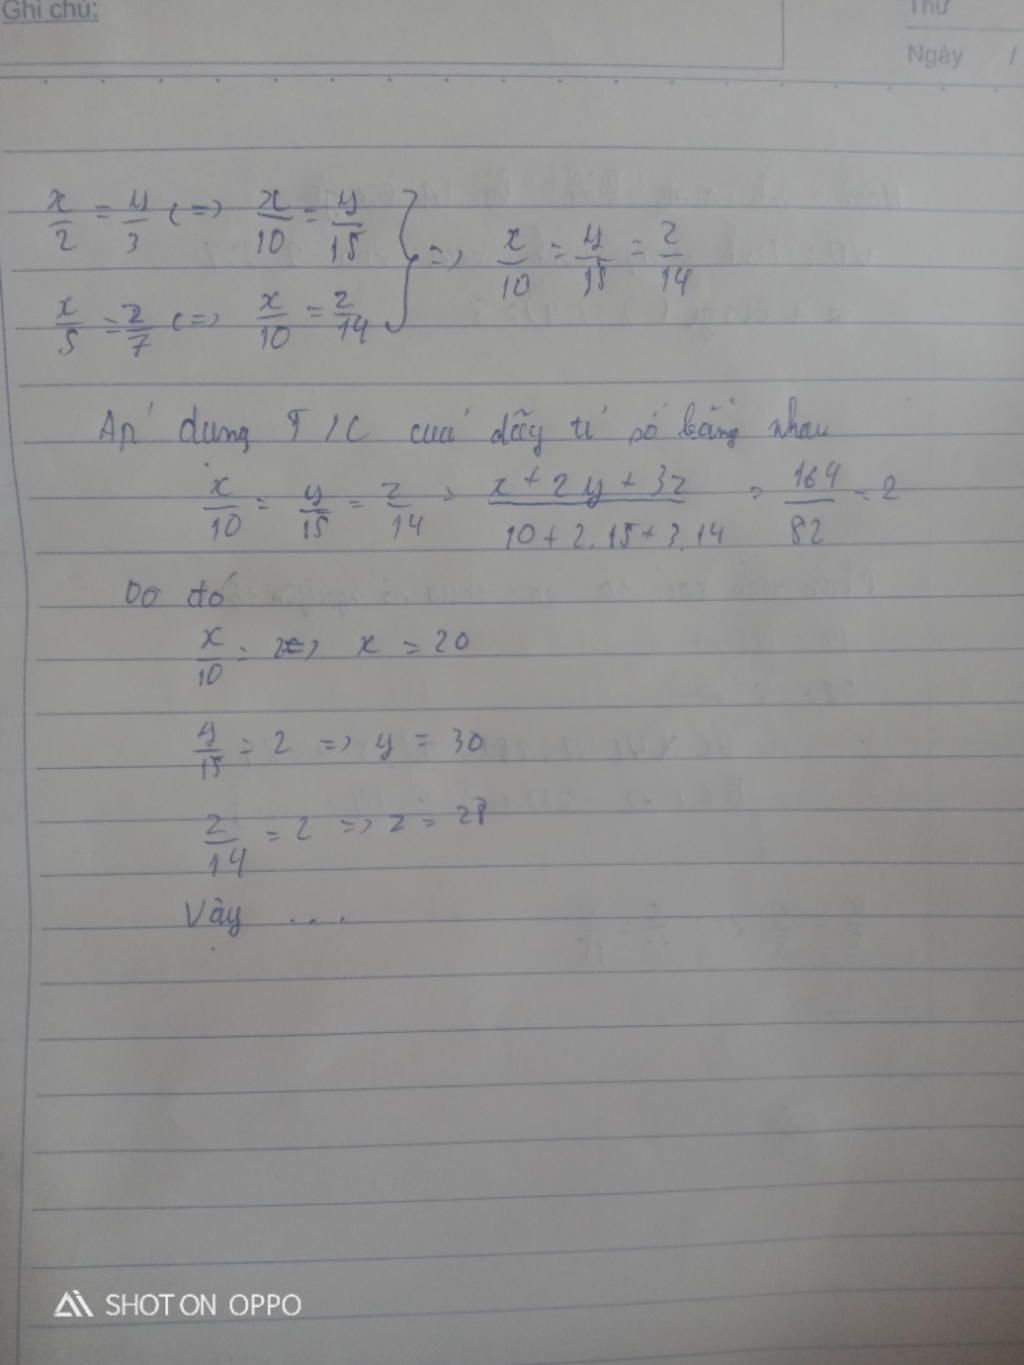 Ghi chú:
Thứ
Ngày /
x/2 = y/3 (=) x/10 = y/15 } => x/10 = y/15 = z/14
x/5 = z/7 (=) x/10 = z/14
Áp dụng T/C cuả dãy tỉ số bằng nhau
x/10 = y/15 = z/14 = x + 2y + 3z / 10 + 2.15 + 3.14 = 164/82 = 2
Do đó
x/10 = 2 => x = 20
y/15 = 2 => y = 30
z/14 = 2 => z = 28
Vậy ...
SHOT ON OPPO